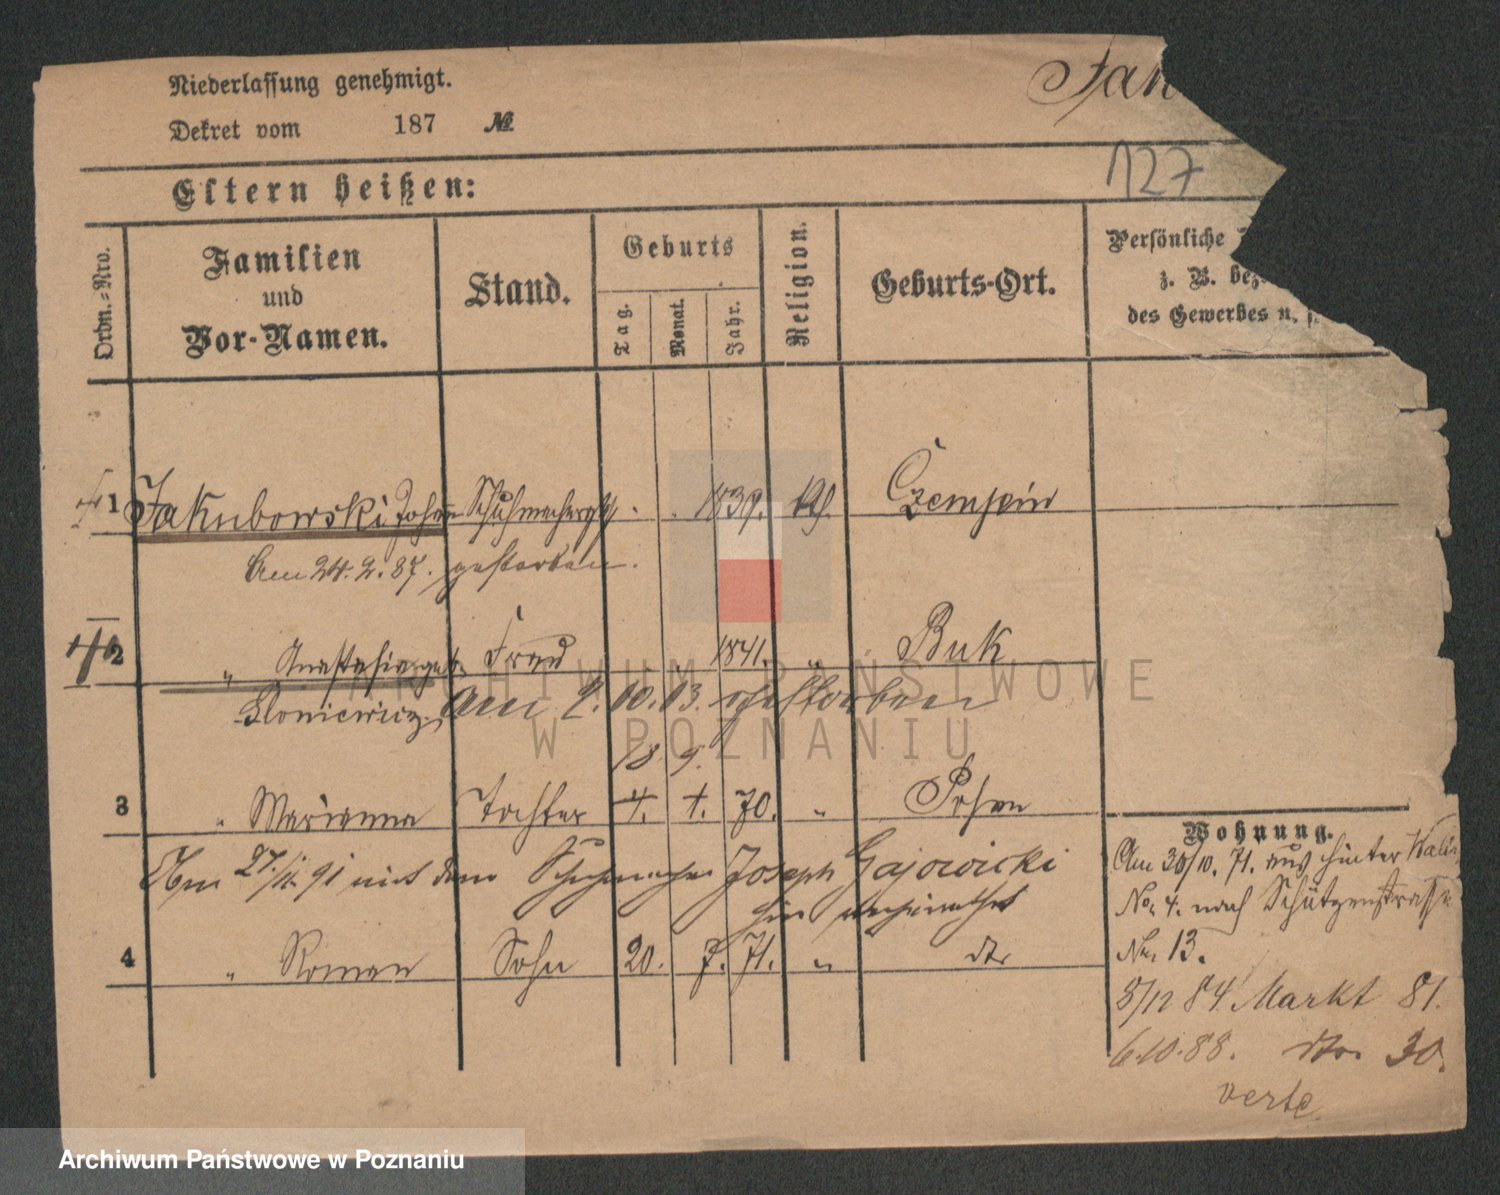 Niederlassung genehmigt.
Dekret vom 187 №
Jak
127
Eltern heißen:
Ordn.-Nro.
Familien
und
Vor-Namen.
Stand.
Geburts
Tag.
Monat.
Jahr.
Religion.
Geburts-Ort.
Persönliche
z. B. bez
des Gewerbes u. s.
1 Jakubowski Johann Schuhmacherges. 1839. kth. Czempin
Am 24.2.87. gestorben.
2 " Anastasia geb. Frau 1841. " Buk
Sloniewicz. Am 2.10.13. gestorben
18. 9.
3 " Marianna Tochter 4. 1. 70. " Posen
Am 27./11. 91 mit dem Schuhmacher Joseph Gajowicki
hier verheirathet
4 " Roman Sohn 20. 7. 71. " dto
Wohnung.
Am 30/10. 71. aus hinter Wali
No. 4. nach Schützenstrasse
No. 13.
5/12 84 Markt 81.
6.10.88. dto. 30.
verte.
ARCHIWUM PAŃSTWOWE
W POZNANIU
Archiwum Państwowe w Poznaniu